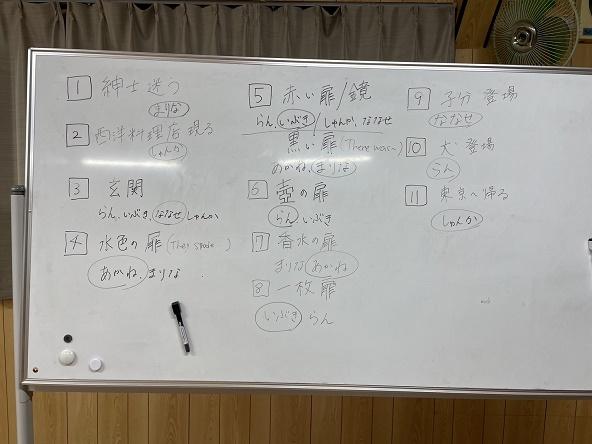 1 紳士迷う
まりな
2 西洋料理店現る
しゅんか
3 玄関
らん、いぶき、ななせ、しゅんか
4 水色の扉 (They
あかね、まりな
5 赤い扉/鏡
らん、いぶき/しゅんか、ななせ
黒い扉 (There was〜)
あかね、まりな
6 壺の扉
らん いぶき
7 香水の扉
まりな あかね
8 一枚扉
いぶき らん
9 子分 登場
ななせ
10 犬 登場
らん
11 東京へ帰る
しゅんか